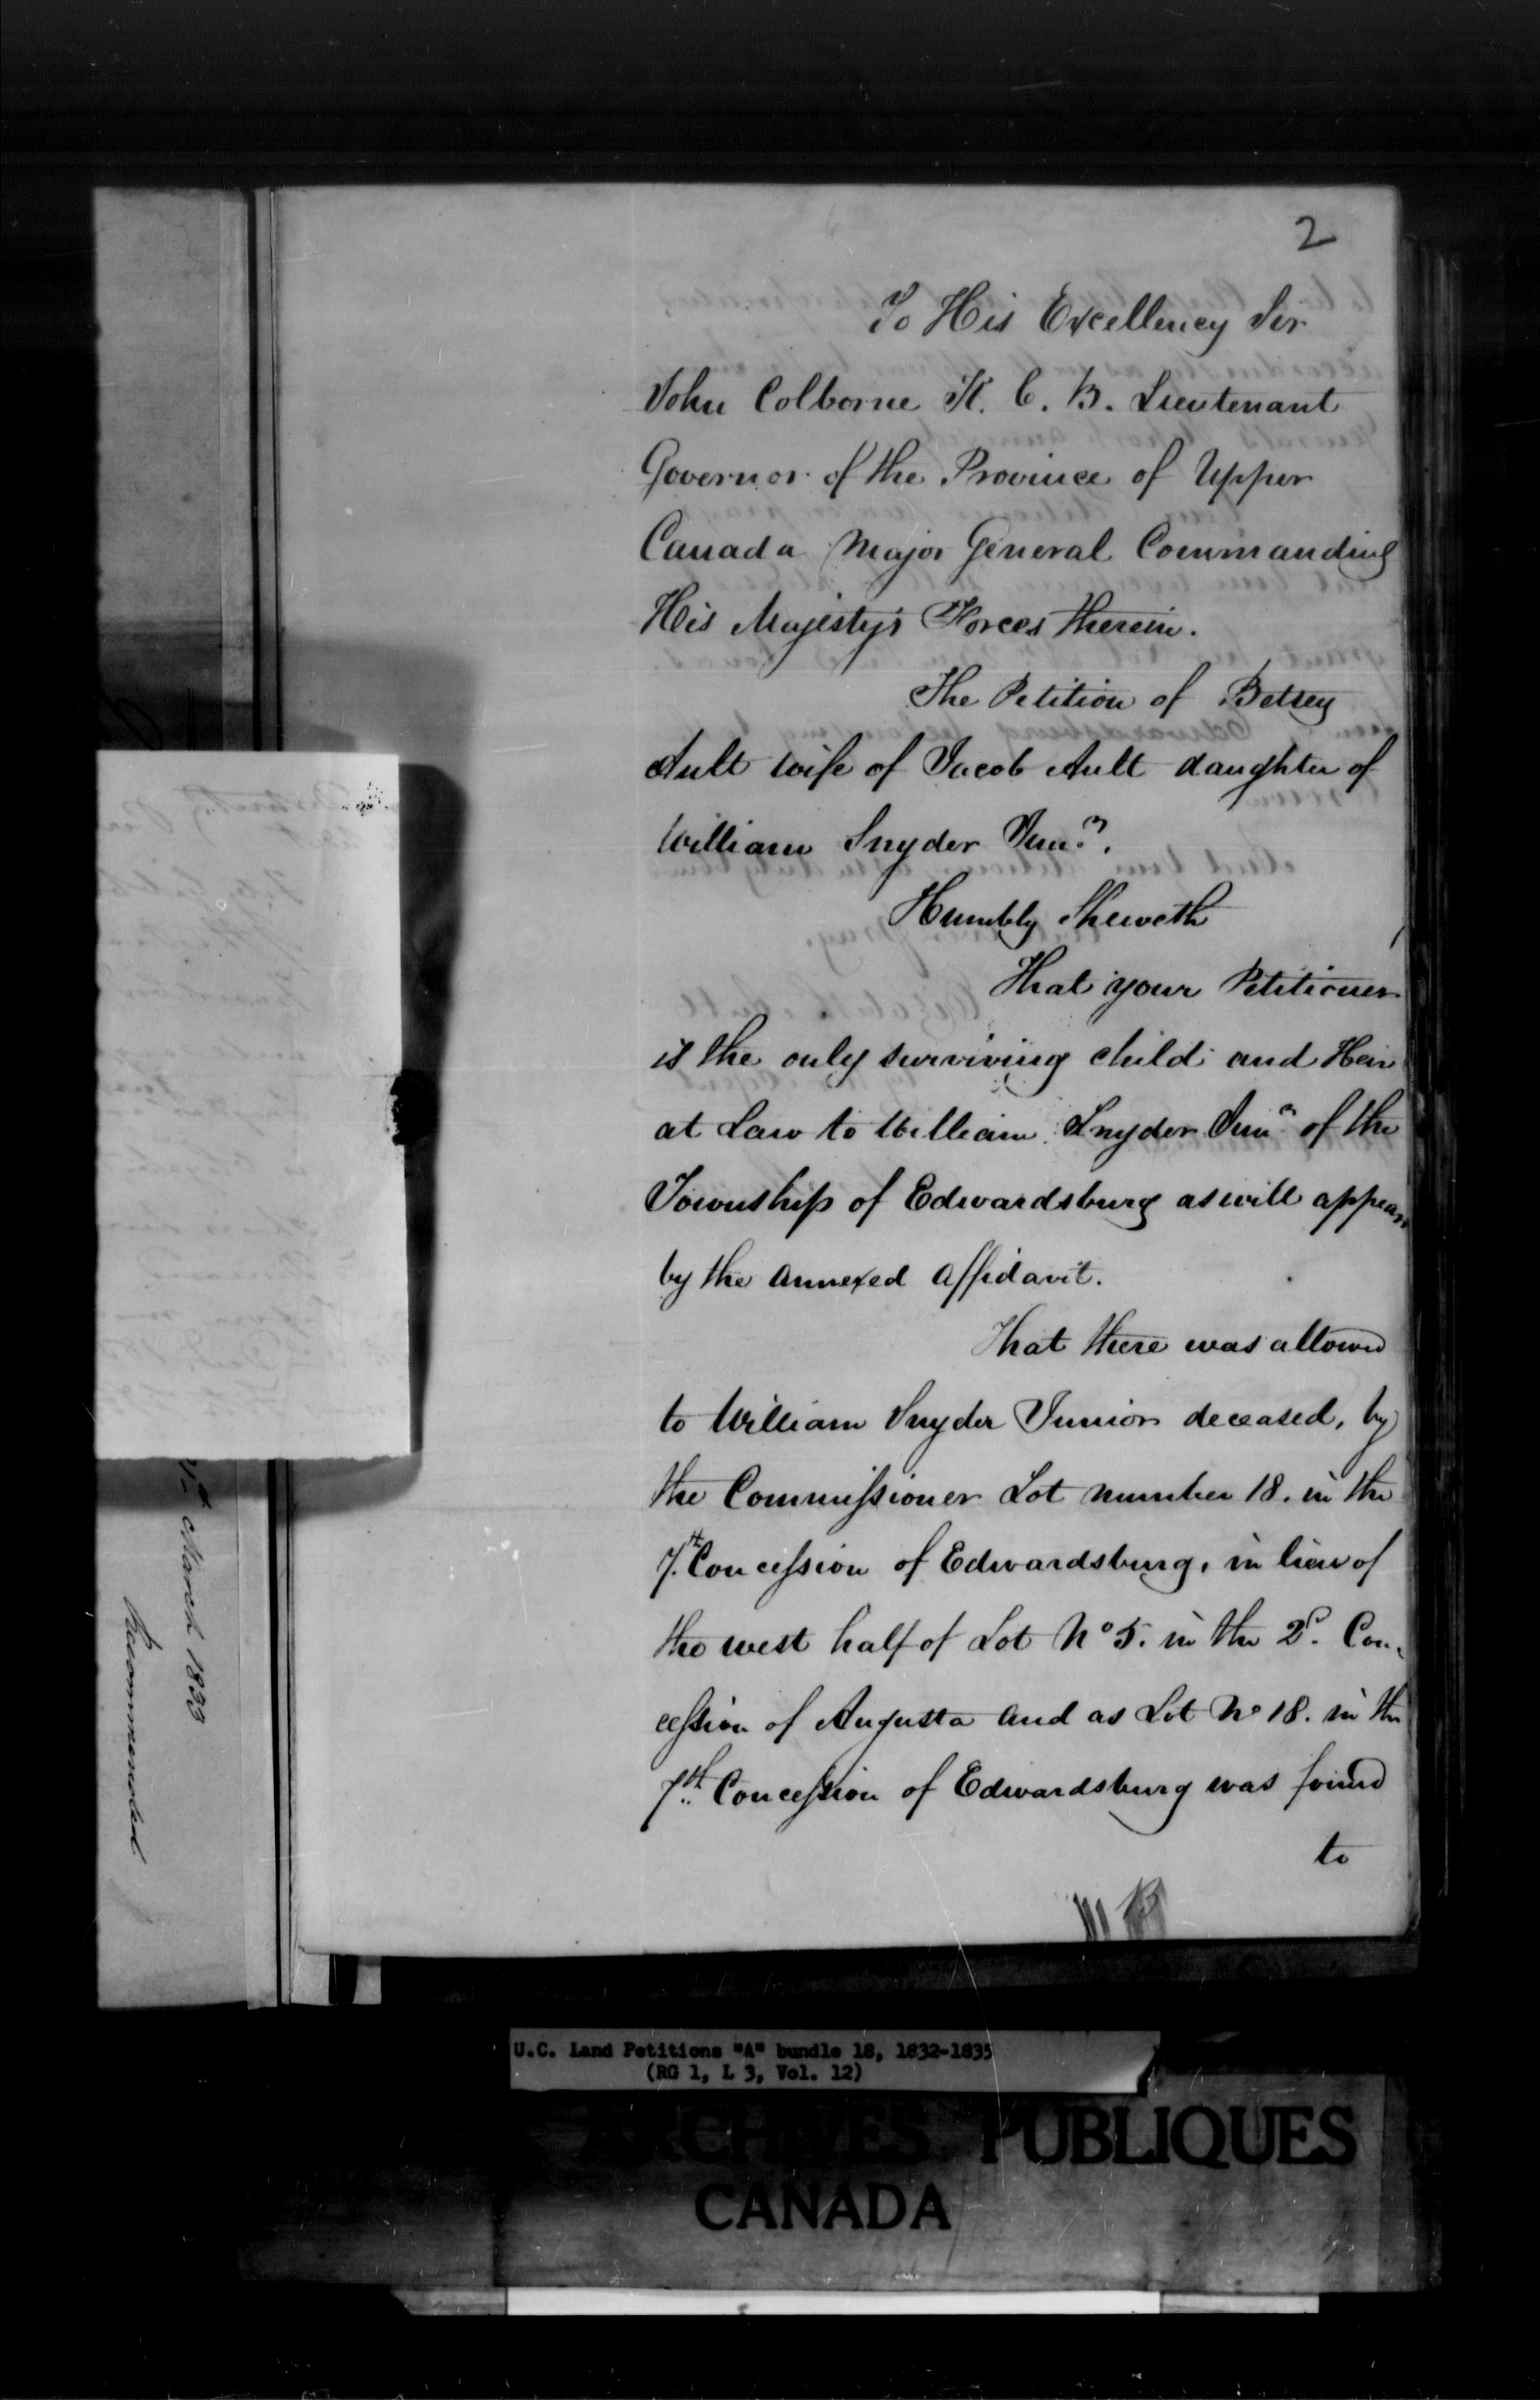 2
To His Excellency Sir
John Colborne K. C. B. Lieutenant
Governor of the Province of Upper
Canada Major General Commanding
His Majesty's Forces therein.
The Petition of Betsey
Ault wife of Jacob Ault daughter of
William Snyder Junr.
Humbly Sheweth
That your Petitioner
is the only surviving child and Heir
at Law to William Snyder Junr of the
Township of Edwardsburg as will appear
by the annexed affidavit.
That there was allowed
to William Snyder Junior deceased, by
the Commissioner Lot number 18. in the
7th. Concession of Edwardsburg, in lieu of
the west half of Lot No 5. in the 2d. Con-
cession of Augusta and as Lot No 18. in the
7th. Concession of Edwardsburg was found
to
March 1833
Recommended
U.C. Land Petitions "A" bundle 18, 1832-1835
(RG 1, L 3, Vol. 12)
ARCHIVES PUBLIQUES
CANADA